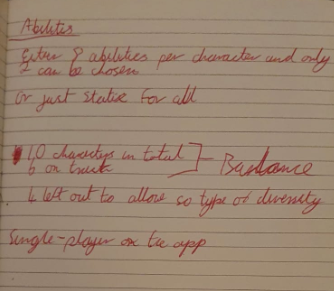 Abilities
Either 8 abilities per character and only
2 can be chosen
Or just static for all
10 characters in total
6 on track
Balance
4 left out to allow so type of diversity
Single-player on the app